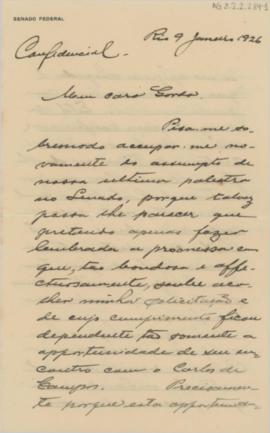 SENADO FEDERAL
Rio 9 Janeiro 1926
Confidencial.
Meu caro Gordo.
Pesa-me so-
bremodo occupar-me no-
vamente do assumpto de
nossa ultima palestra
no Senado, porque talvez
possa lhe parecer que
pretendo apenas fazer
lembrada a promessa com
que, tão bondosa e affe-
ctuosamente, soube aco-
lher minha solicitação e
de cujo cumprimento ficou
dependente tão somente a
opportunidade de seu en-
contro com o Carlos de
Campos. Precisamen-
te porque esta opportuni-